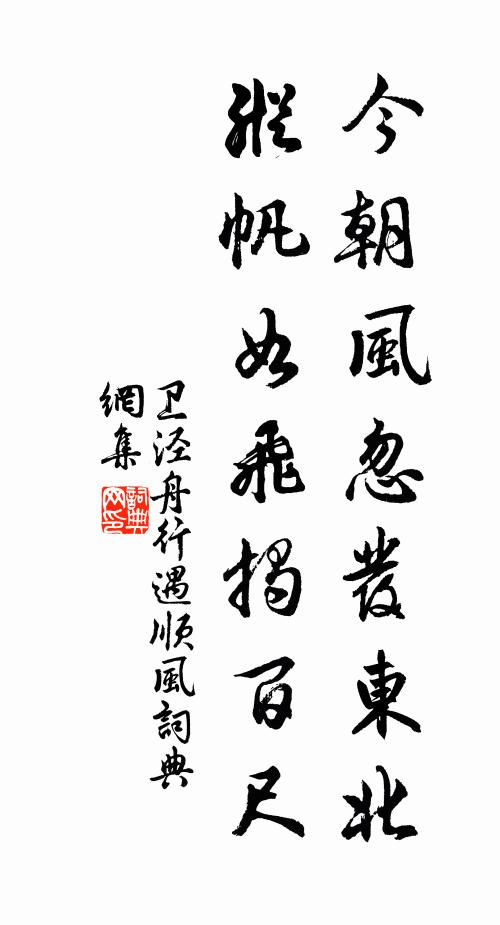 今朝風忽發東北
縱帆如飛揭百尺
卫泾舟行遇順風詞典
網集
詞典
网印